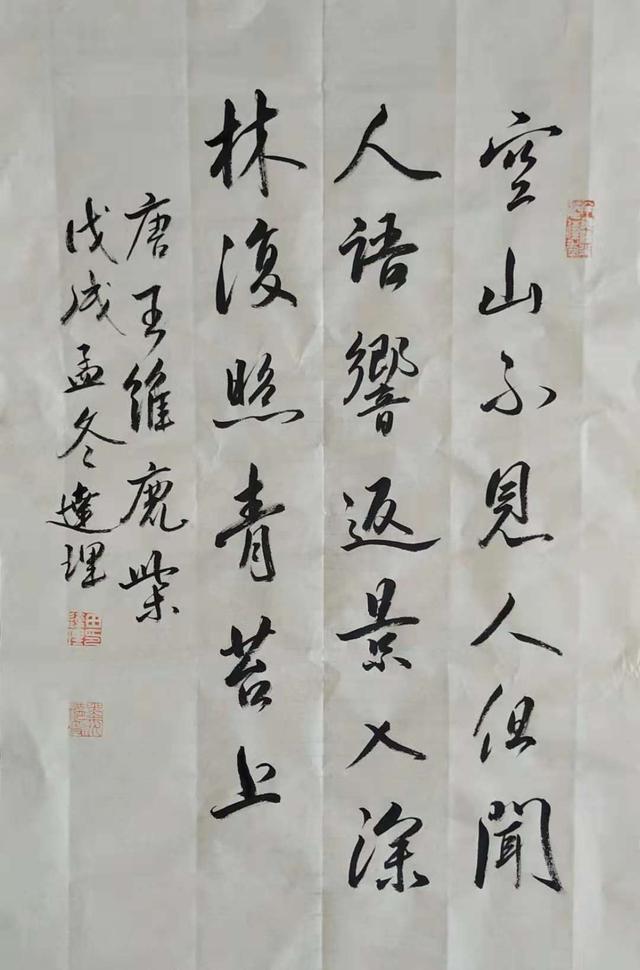 空山不見人但聞
人語響返景入深
林復照青苔上
唐王維鹿柴
戊戌孟冬達理